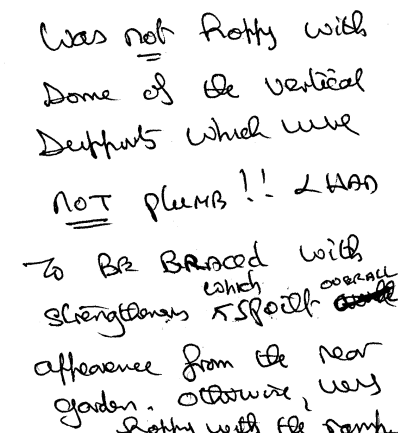 Was not happy with
Some of the vertical
Supports which were
NOT PLUMB!! & HAD
To BE BRACED with
strengtheners which spoilt OVERALL
appearance from the rear
garden. Otherwise, very
happy with the ramp